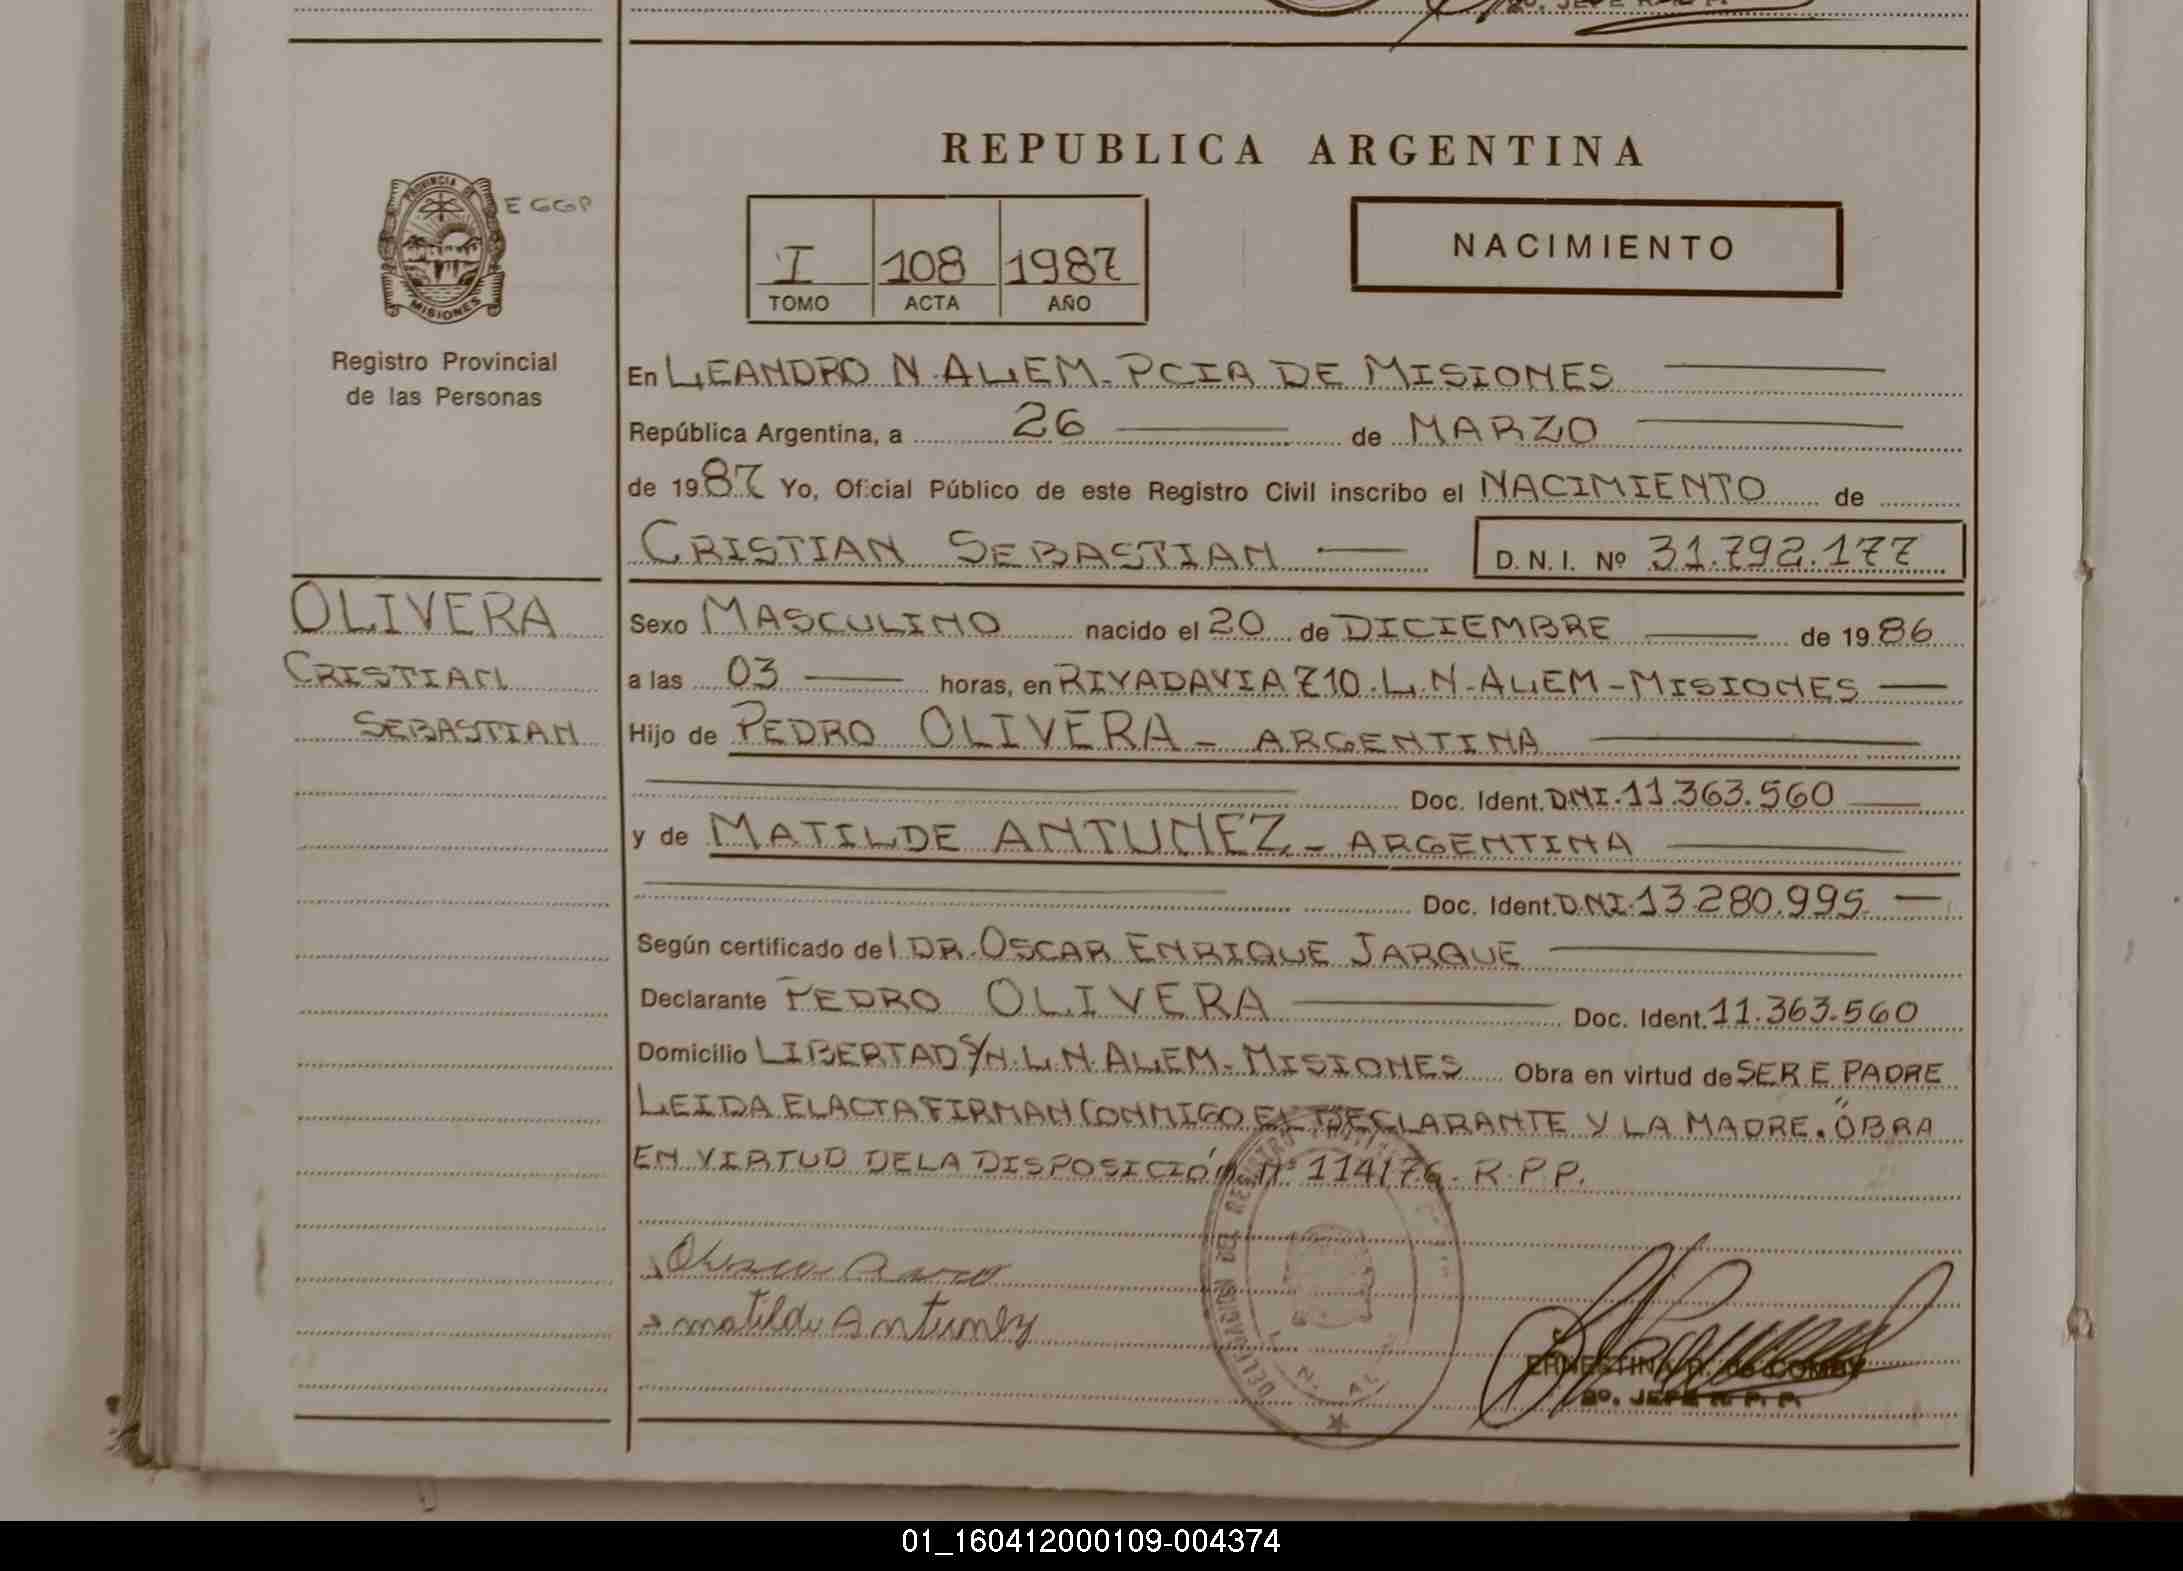 2º. JEFE R. P. P.
REPUBLICA ARGENTINA
PROVINCIA DE
MISIONES
EGGP
I 108 1987
TOMO ACTA AÑO
NACIMIENTO
Registro Provincial
de las Personas
En LEANDRO N. ALEM. PCIA DE MISIONES
República Argentina, a 26 de MARZO
de 1987 Yo, Oficial Público de este Registro Civil inscribo el NACIMIENTO de
CRISTIAN SEBASTIAN D. N. I. Nº 31.792.177
OLIVERA
CRISTIAN
SEBASTIAN
Sexo MASCULINO nacido el 20 de DICIEMBRE de 1986
a las 03 horas, en RIVADAVIA 710. L. N. ALEM - MISIONES
Hijo de PEDRO OLIVERA - ARGENTINA
Doc. Ident. DNI. 11.363.560
y de MATILDE ANTUNEZ - ARGENTINA
Doc. Ident. DNI. 13.280.995
Según certificado del DR. OSCAR ENRIQUE JARQUE
Declarante PEDRO OLIVERA Doc. Ident. 11.363.560
Domicilio LIBERTAD S/N. L. N. ALEM. MISIONES Obra en virtud de SER E PADRE
LEIDA EL ACTA FIRMAN CONMIGO EL DECLARANTE Y LA MADRE. "OBRA
EN VIRTUD DE LA DISPOSICIÓN Nº 114/76. R.P.P.
matilde Antunez
DELEGACION DEL REGISTRO
ERNESTINA R. de COMBY
2º. JEFE R. P. P.
01_160412000109-004374